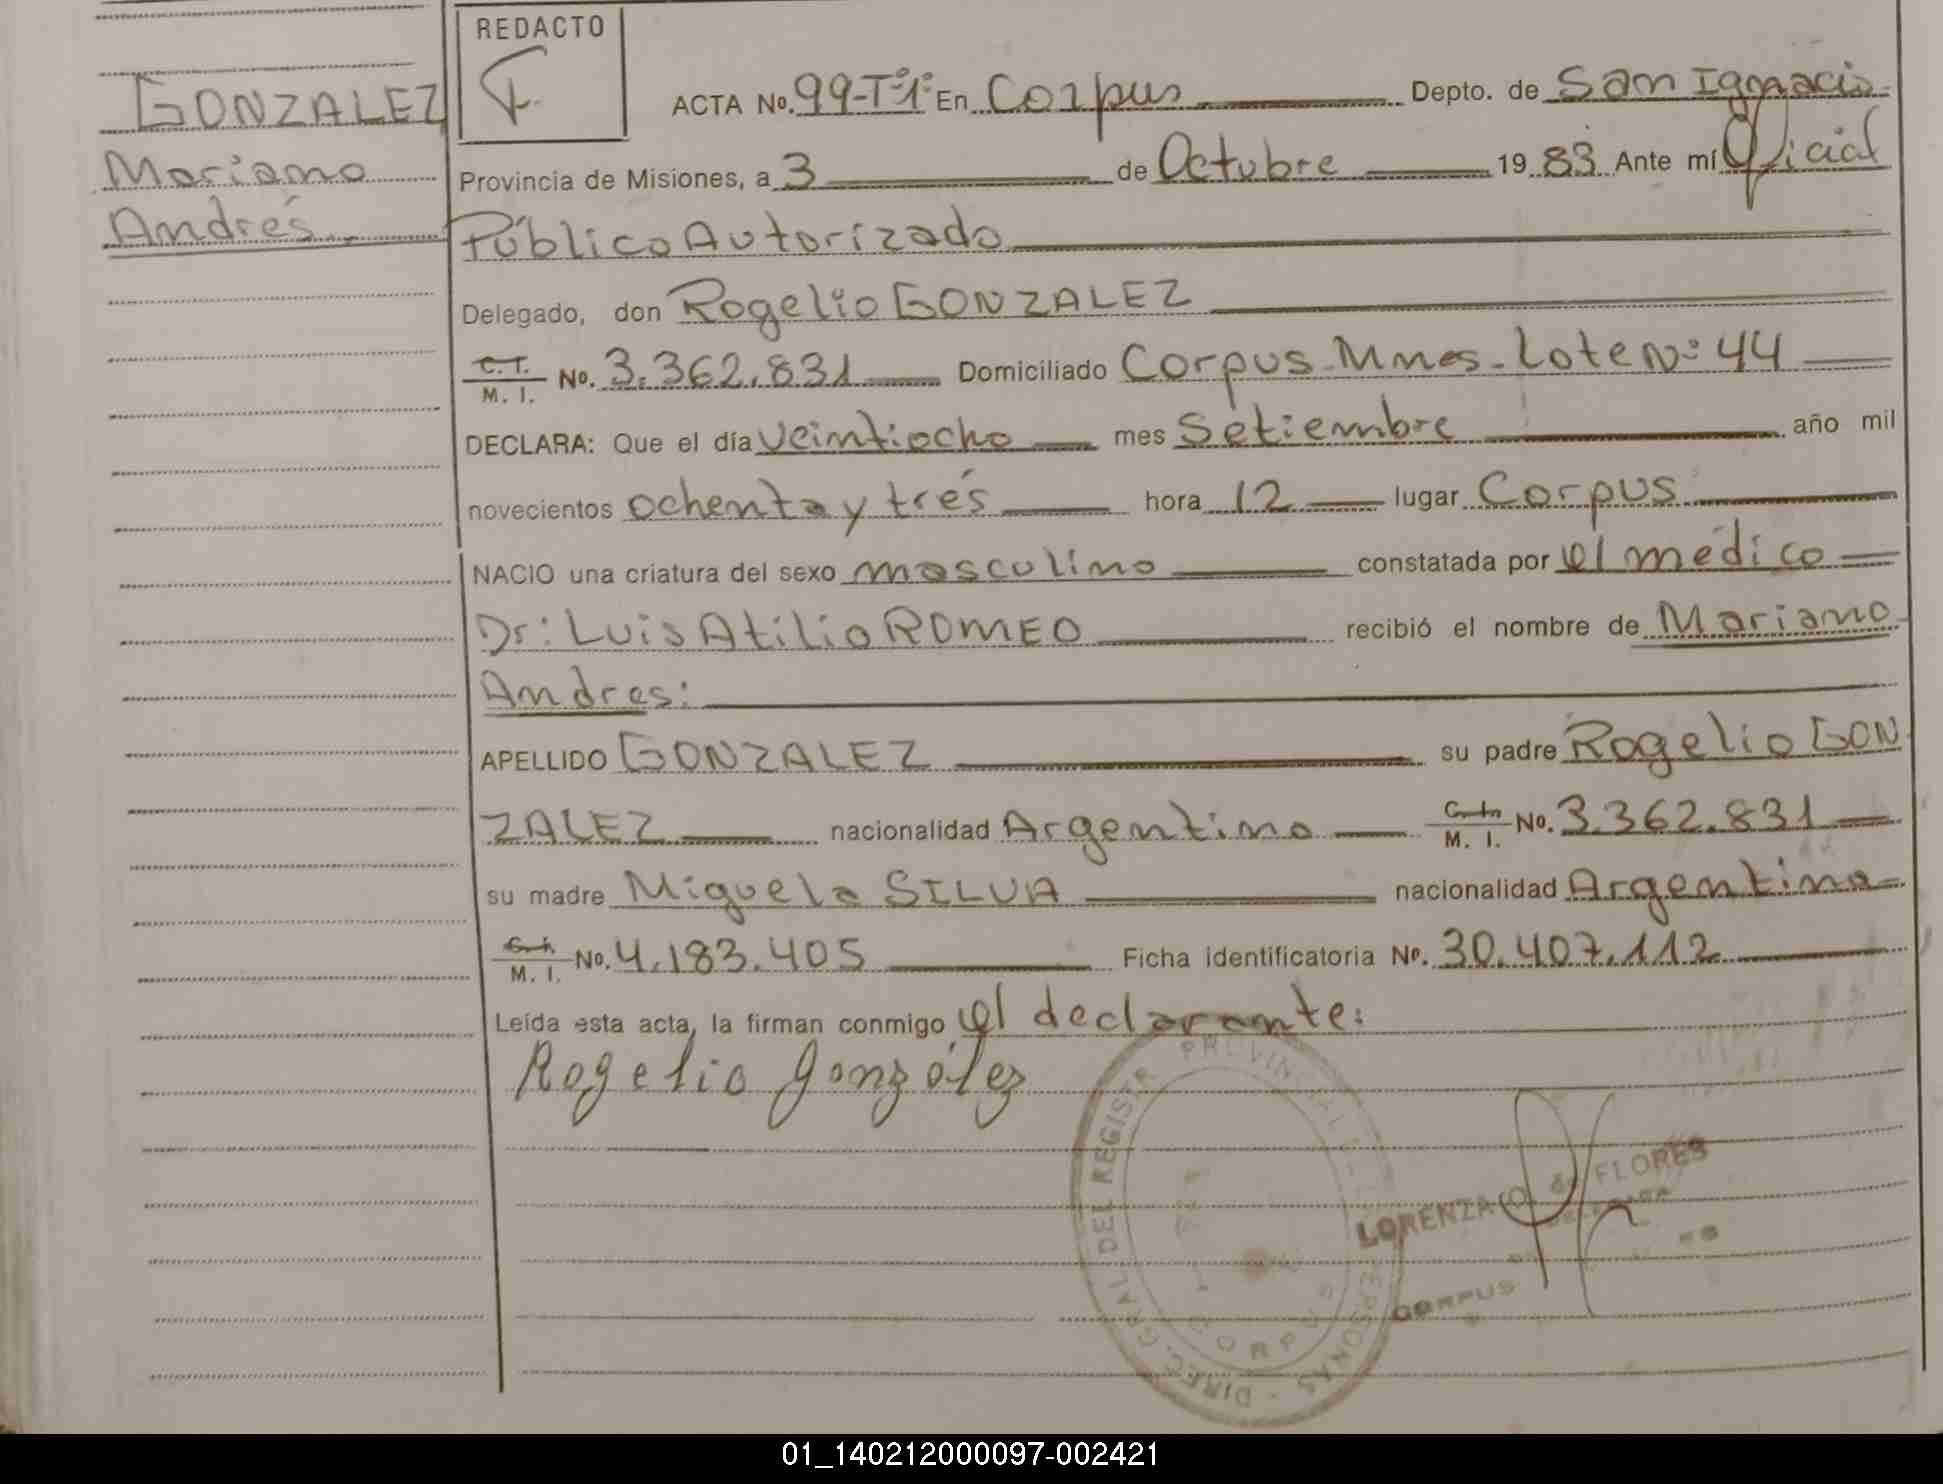 REDACTO
GONZALEZ
Mariano
Andrés.
ACTA No. 99-Tº1º En Corpus Depto. de San Ignacio
Provincia de Misiones, a 3 de Octubre 1983. Ante mí Oficial
Público Autorizado
Delegado, don Rogelio GONZALEZ
C. I.
M. I. No. 3.362.831 Domiciliado Corpus-Mnes-Lote Nº 44
DECLARA: Que el día veintiocho mes Setiembre año mil
novecientos ochenta y trés hora 12 lugar Corpus
NACIO una criatura del sexo masculino constatada por el médico
Dr: Luis Atilio ROMEO recibió el nombre de Mariano
Andres:
APELLIDO GONZALEZ su padre Rogelio GON
ZALEZ nacionalidad Argentino M. I. No. 3.362.831
su madre Miguela SILVA nacionalidad Argentina
M. I. No. 4.183.405 Ficha identificatoria No. 30.407.112
Leída esta acta, la firman conmigo el declarante:
Rogelio González
DIREC. GRAL DEL REGISTR PROVINCIAL PERSONAS
CORPUS
LORENZA O. de FLORES
CORPUS
01_140212000097-002421